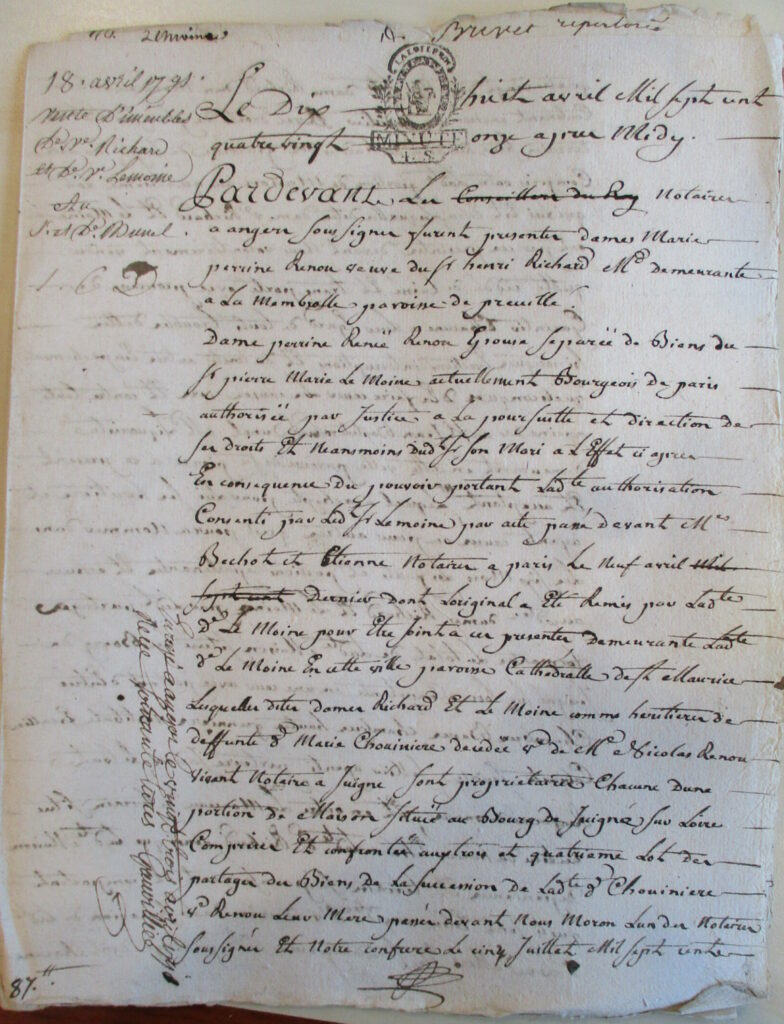 Brevet repertorié
18. avril 1791.
vente d'immeubles
De. ve. Richard
et De. ve. Lemoine
Au
Sr. et De. Dunel.
Le Dix huit avril Mil sept cent
quatre vingt onze apres Midy.
MINUTE
Pardevant Les Conseillers du Roy Notaires
a angers soussignés furent presentes dames Marie
perrine Renou veuve du Sr. henri Richard Md. demeurante
a La Membrolle paroisse de
Dame perrine Reneë Renou Epouse separée de Biens du
Sr. pierre Marie Le Moine actuellement Bourgeois de paris
authorisée par Justice a La poursuitte et direction de
ses droits Et Neansmoins dudt. Sr. son Mari a L'Effet ci apres
En consequence du pouvoir portant Ladte authorisation
Consenti par Ledt. Sr. Lemoine par acte passé devant Mes
Bechot et Etienne Notaires a paris Le Neuf avril Mil
sept cent Dernier dont Loriginal a Eté Remis par Ladte
de. Le Moine pour Etre joint a ces presentes demeurante Ladte
de. Le Moine En cette ville paroisse Cathédralle de St Maurice
Lesquelles dites dames Richard Et Le Moine comme heritieres de
deffunte de Marie Chouiniere decedée ve. de Me. Nicolas Renou
vivant Notaire a Juigné sont propriétaires Chacune d'une
portion de Maison située au Bourg de Juigné sur Loire
Comprises Et confrontées aux trois et quatrieme Lot des
partages des Biens de La succession de Ladte de Chouiniere
ve. Renou Leur Mere passés devant Nous Moron L'un des Notaires
soussignés Et Notre confrere Le cinq Juillet Mil sept cents
87.tt